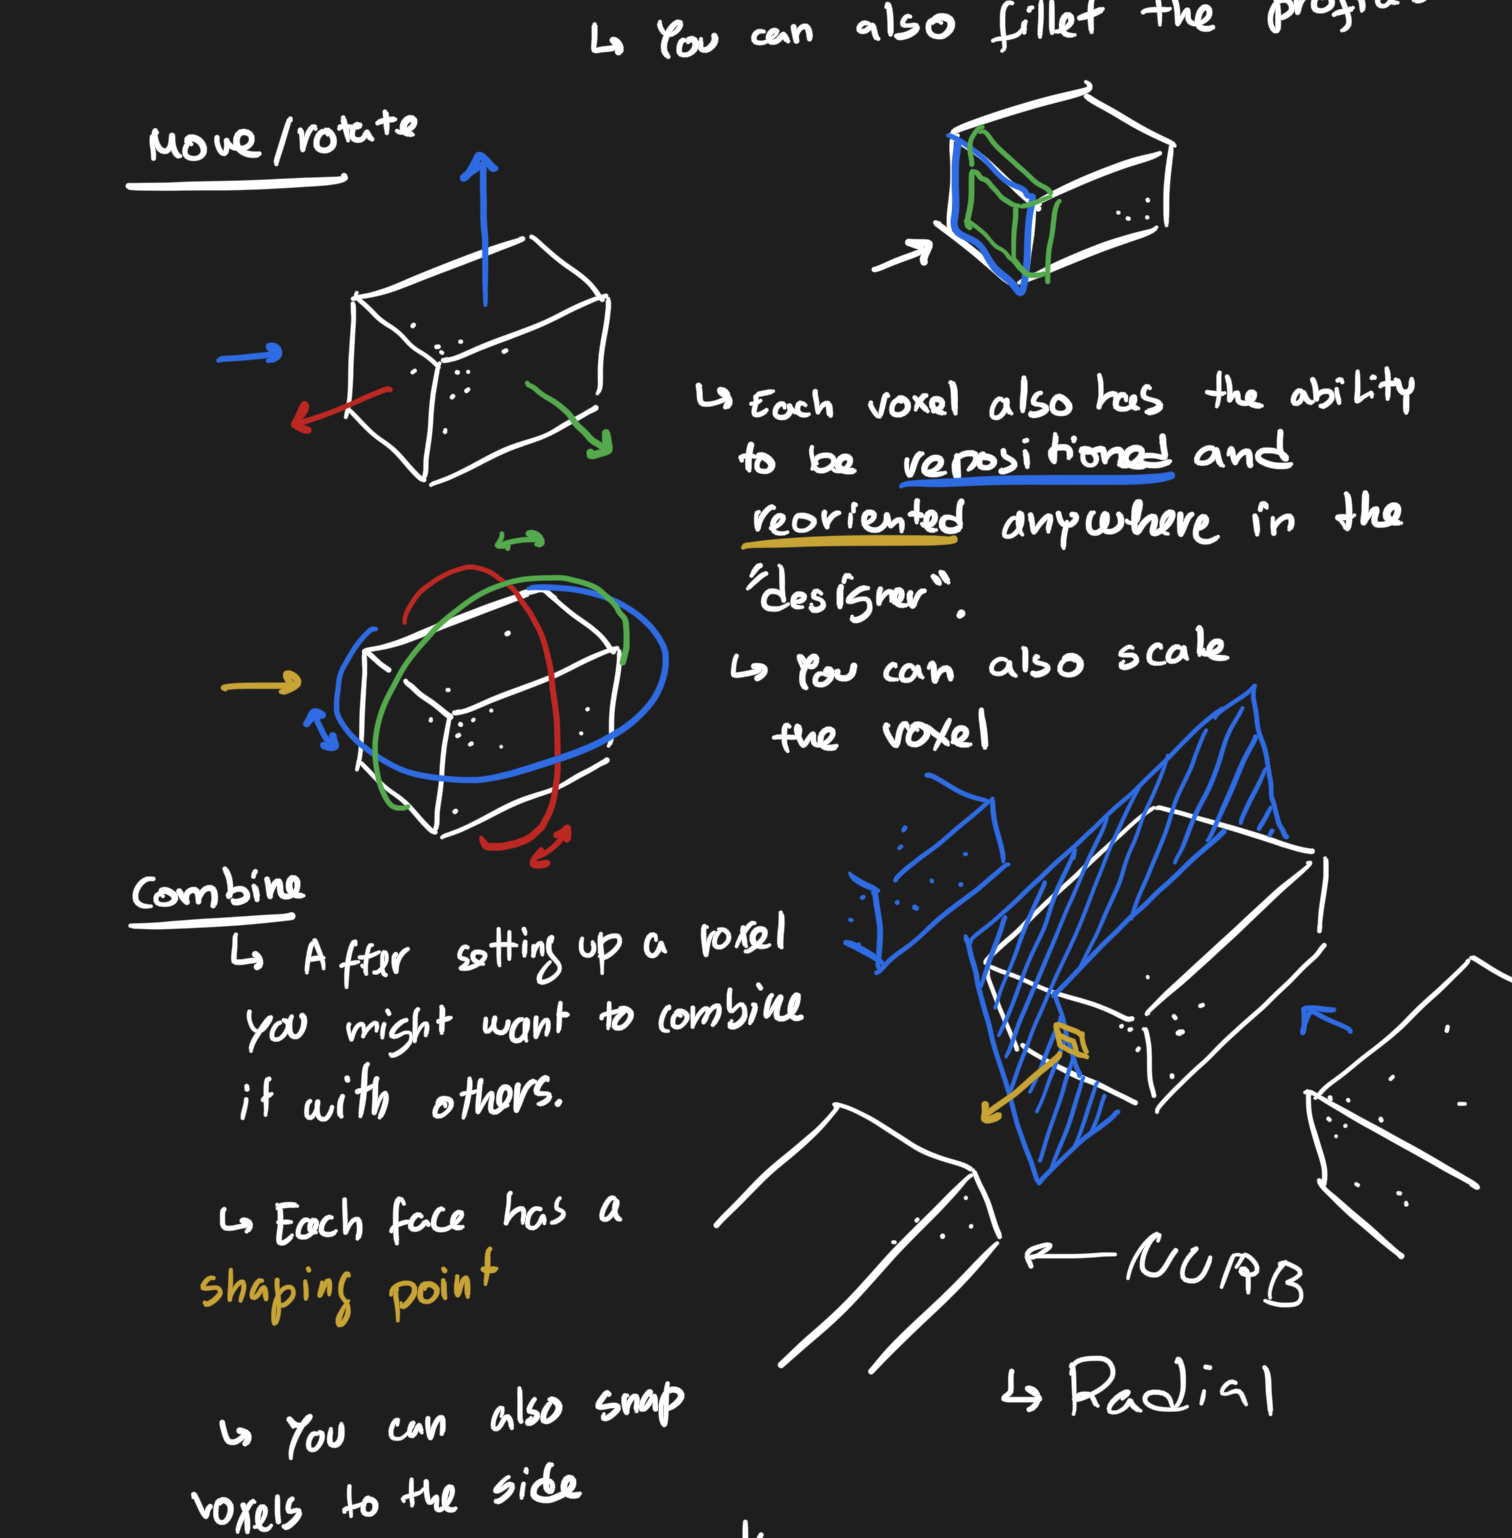 ↳ You can also fillet the
Move/rotate
↳ Each voxel also has the ability
to be repositioned and
reoriented anywhere in the
"designer".
↳ You can also scale
the voxel
Combine
↳ After setting up a voxel
you might want to combine
it with others.
↳ Each face has a
shaping point
↳ You can also snap
voxels to the side
← NURB
↳ Radial